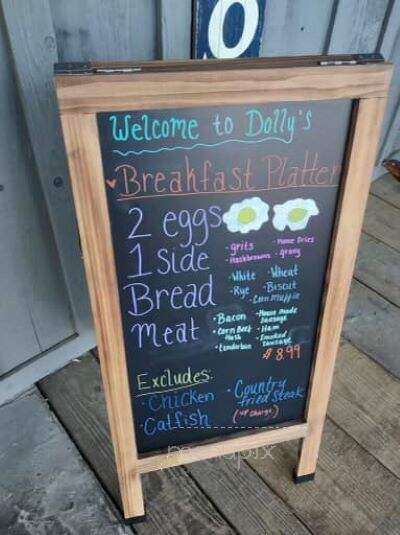 O
Welcome to Dolly's
Breakfast Platter
2 eggs
1 Side
· grits · Home Fries
· Hashbrowns · gravy
Bread
· White · Wheat
· Rye · Biscuit
· Corn muffin
Meat
· Bacon · House made Sausage
· Corn Beef Hash · Ham
· tenderloin · Smoked Sausage
$8.99
Excludes:
· Chicken · Country fried Steak
· Catfish (up charge)